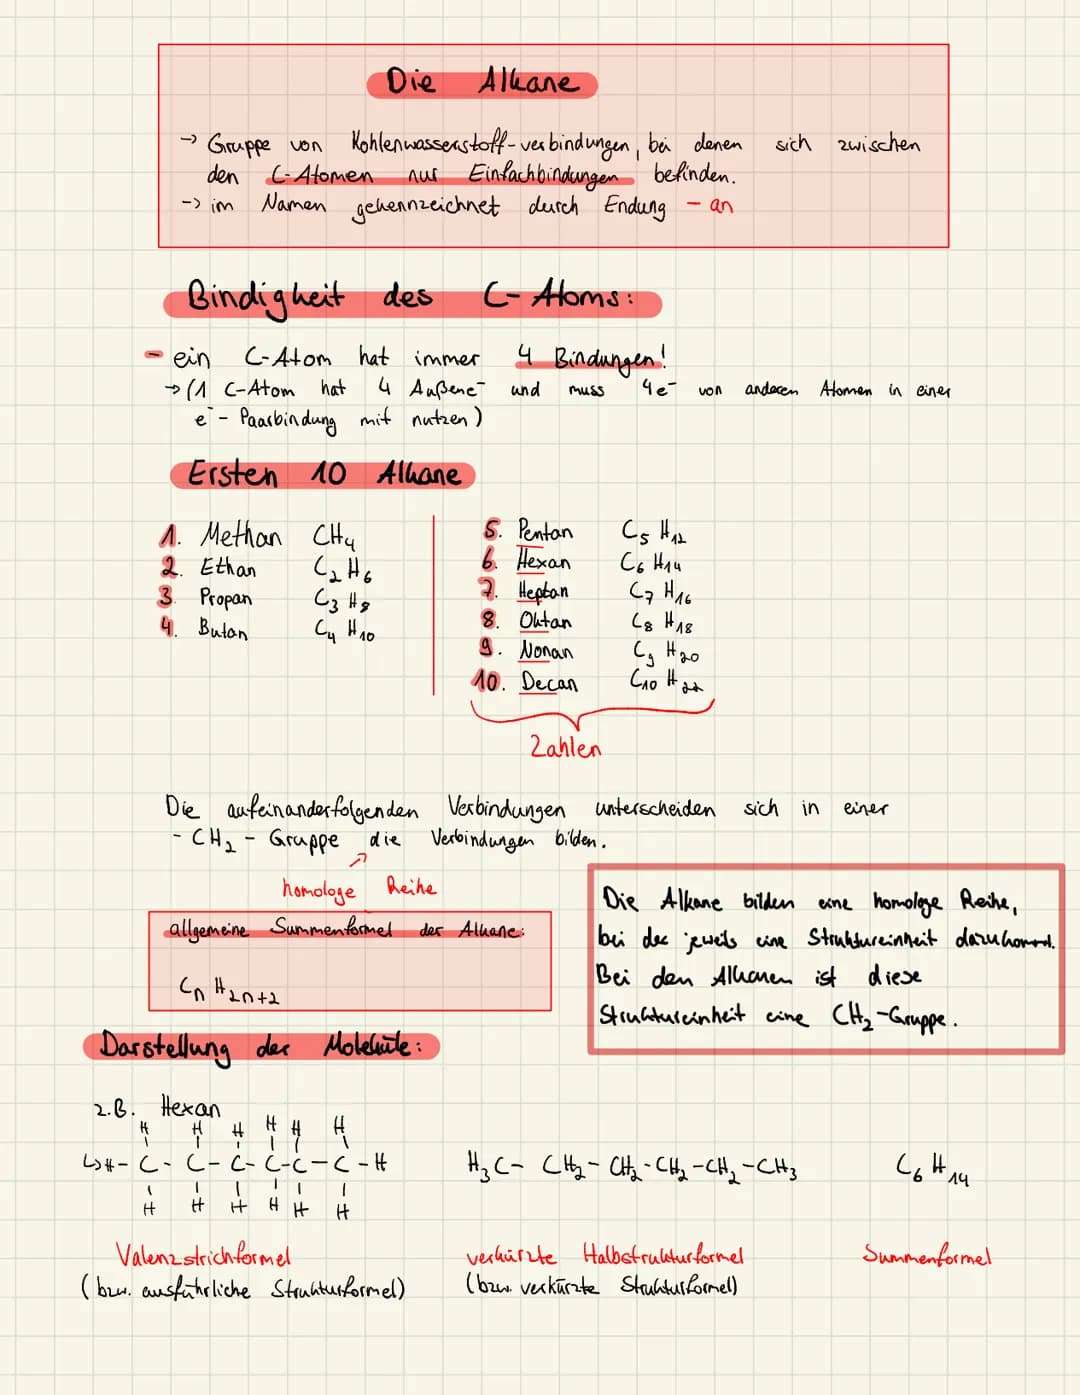 Die Alkane
-> Gruppe von Kohlenwasserstoff-verbindungen, bei denen sich zwischen
den C-Atomen nur Einfachbindungen befinden.
-> im Namen gekennzeichnet durch Endung -an
Bindigkeit des C-Atoms:
- ein C-Atom hat immer 4 Bindungen!
→ (1 C-Atom hat 4 Außene⁻ und muss 4e⁻ von anderen Atomen in einer
e⁻- Paarbindung mit nutzen)
Ersten 10 Alkane
1. Methan CH₄
2. Ethan C₂H₆
3. Propan C₃H₈
4. Butan C₄H₁₀
5. Pentan C₅H₁₂
6. Hexan C₆H₁₄
7. Heptan C₇H₁₆
8. Oktan C₈H₁₈
9. Nonan C₉H₂₀
10. Decan C₁₀H₂₂
Zahlen
Die aufeinanderfolgenden Verbindungen unterscheiden sich in einer
- CH₂ - Gruppe die Verbindungen bilden.
homologe Reihe
allgemeine Summenformel der Alkane:
CₙH₂ₙ₊₂
Die Alkane bilden eine homologe Reihe,
bei der jeweils eine Struktureinheit dazukommt.
Bei den Alkanen ist diese
Struktureinheit eine CH₂-Gruppe.
Darstellung der Moleküle:
z.B. Hexan
H H H H H H
↳ H - C - C - C - C - C - C - H
H H H H H H
H₃C - CH₂ - CH₂ - CH₂ - CH₂ - CH₃
C₆H₁₄
Valenzstrichformel
(bzw. ausführliche Strukturformel)
verkürzte Halbstrukturformel
(bzw. verkürzte Strukturformel)
Summenformel